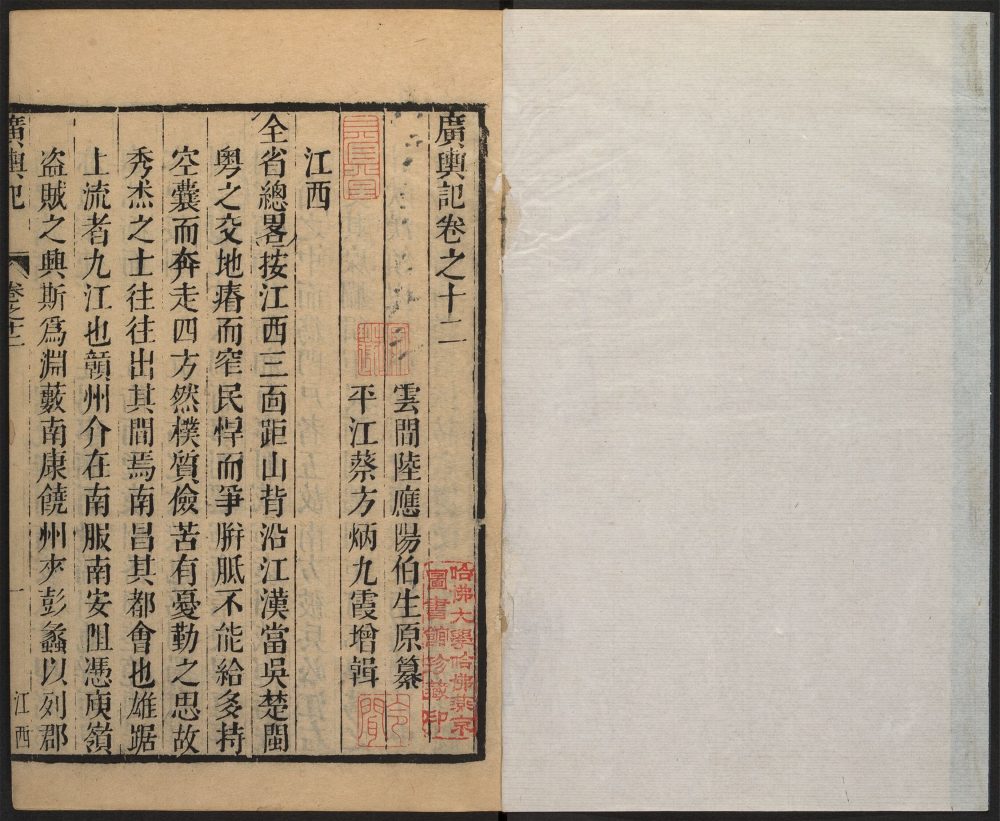 廣輿記卷之十二
雲間陸應陽伯生原纂
平江蔡方炳九霞增輯
江西
全省總畧按江西三面距山背沿江漢當吳楚閩
粵之交地瘠而窄民悍而爭胼胝不能給多持
空囊而奔走四方然樸質儉苦有憂勤之思故
秀杰之士往往出其間焉南昌其都會也雄踞
上流者九江也贛州介在南服南安阻憑庾嶺
盗賊之興斯爲淵藪南康饒州夾彭蠡以列郡
廣輿記
卷之十二
一
江西
哈佛大學哈佛燕京
圖書館珍藏印